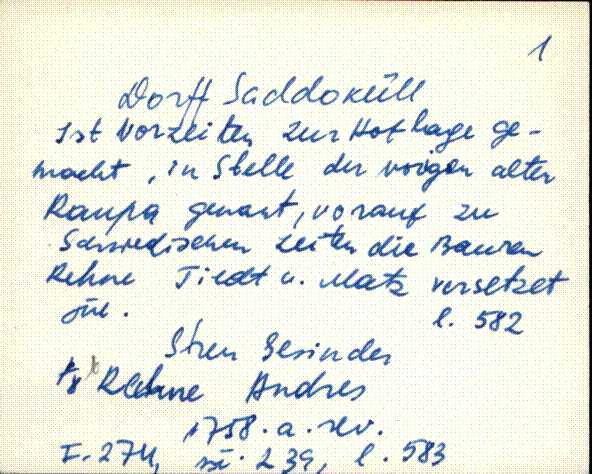 1
Dorff Saddoküll
Ist Vorzeiten zur Hoflage ge-
macht, in Stelle der vorigen alten
Raupa genant, vorauf zu
Schwedischen Zeiten die Bauren
Rehne Tiedt u. Matz versetzet
l. 582
Streu Gesinder
Rehne Andres
1758. a. rev.
F. 274, 239, l. 583